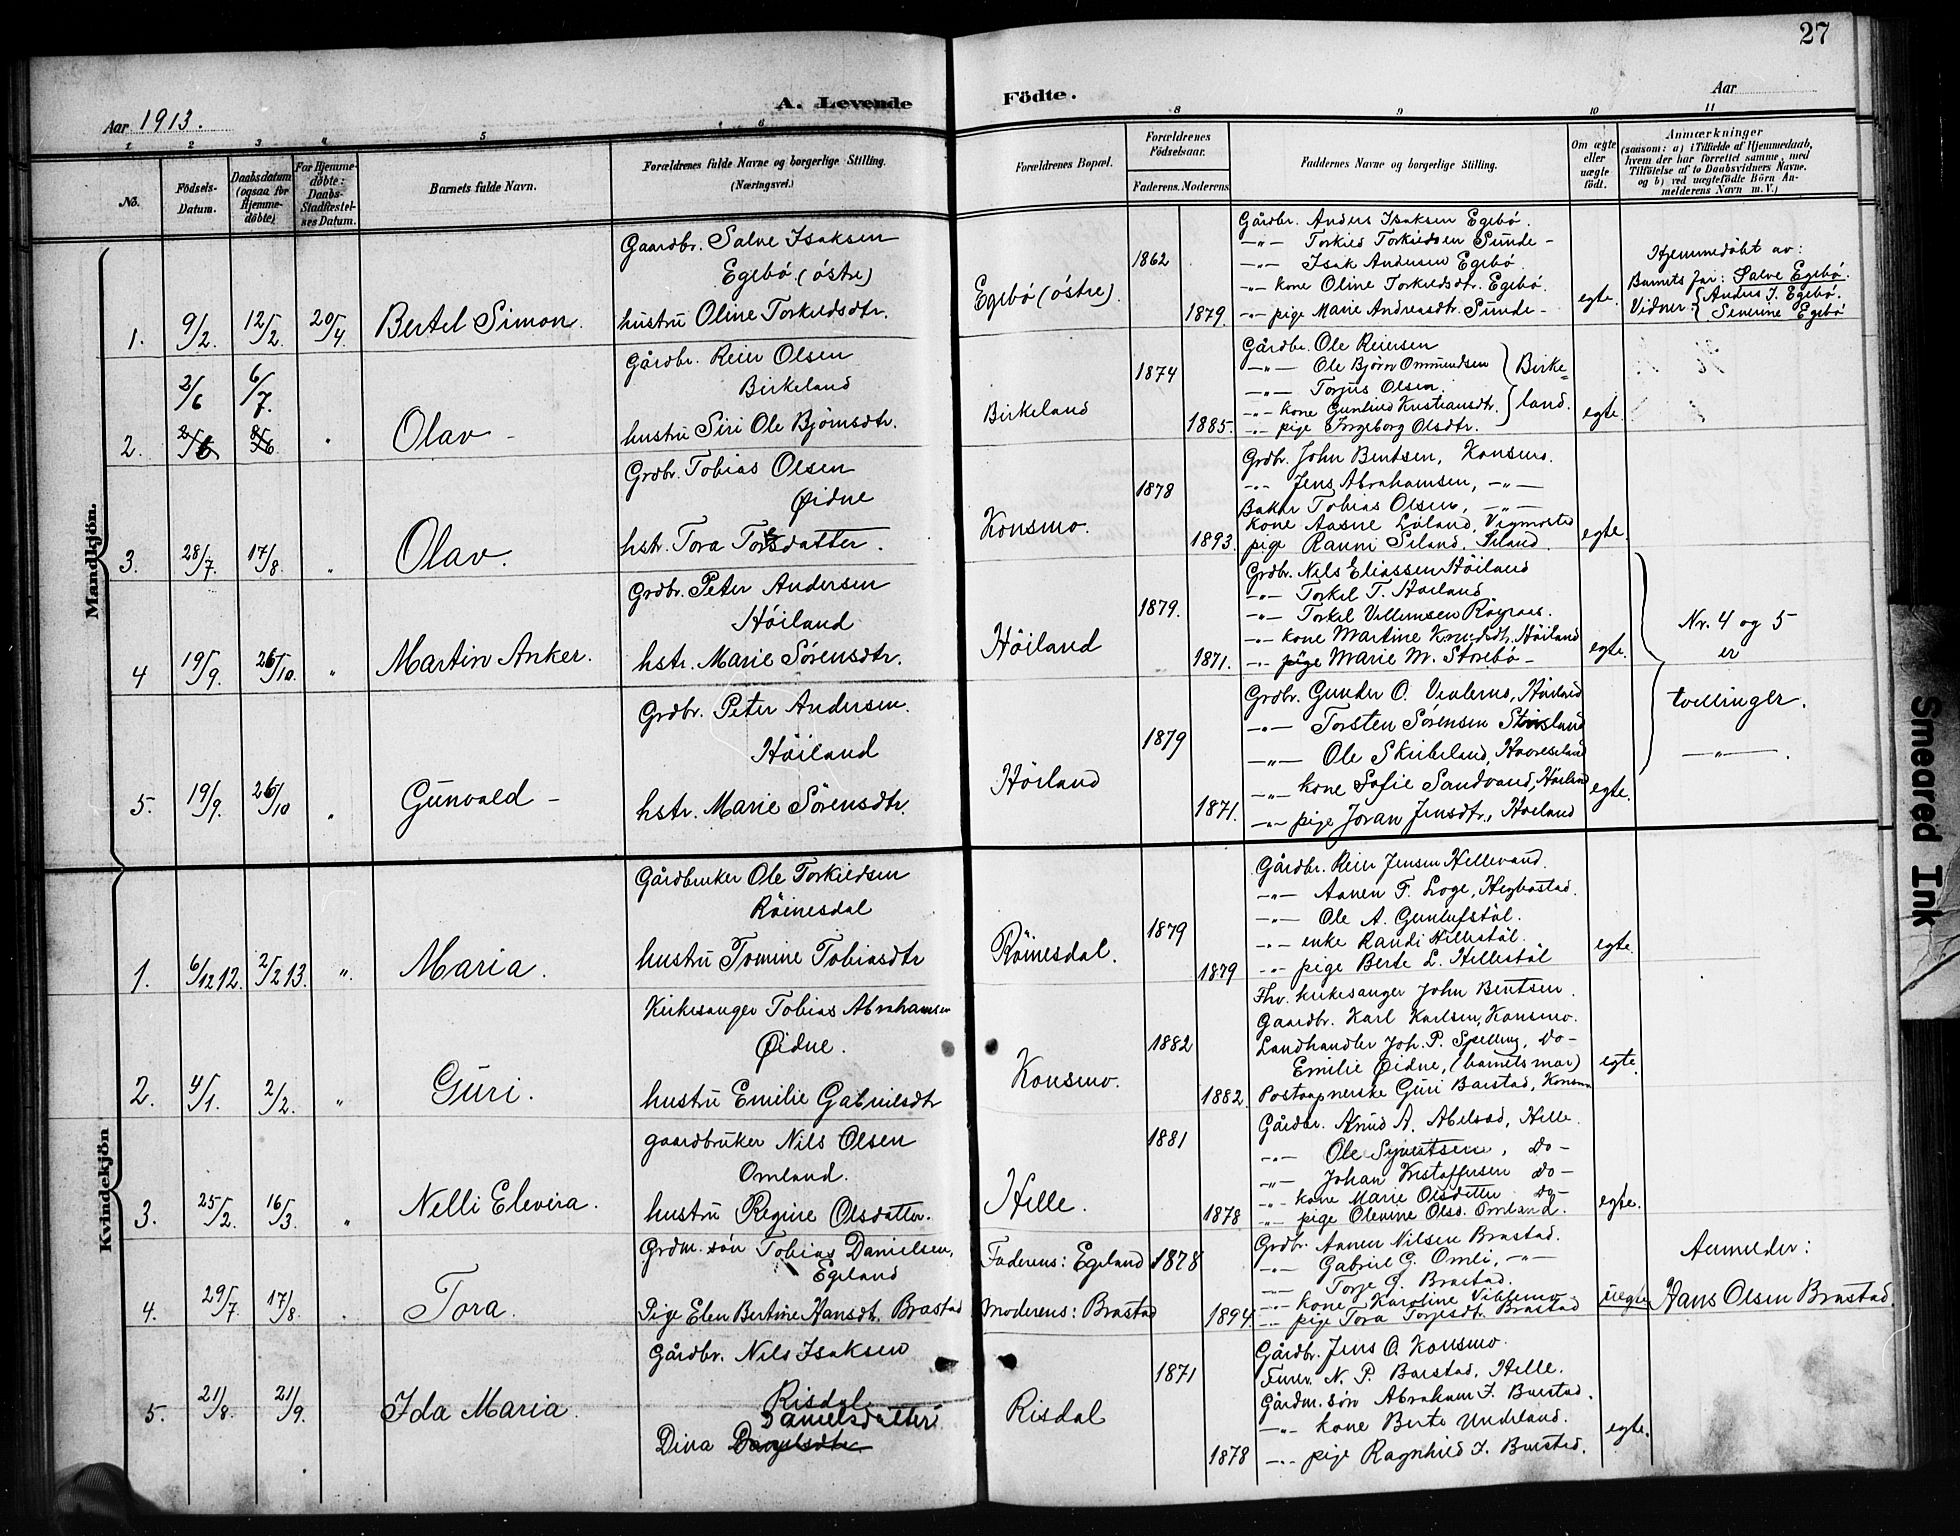 27
A. Levende Födte.
Aar 1913.
Aar
1 2 3 4 5 6 8 9 10 11
No.
Födsels-Datum.
Daabsdatum (ogsaa for Hjemme-döbte)
For Hjemme-döbte: Daabs Stadfæstelses Datum.
Barnets fulde Navn.
Forældrenes fulde Navne og borgerlige Stilling. (Næringsvei.)
Forældrenes Bopæl.
Forældrenes Födselsaar.
Faderens. Moderens.
Faddernes Navne og borgerlige Stilling.
Om ægte eller uægte födt.
Anmærkninger
(saasom: a) i Tilfælde af Hjemmedaab, hvem der har forrettet samme, med Tilföielse af to Daabsvidners Navne. og b) ved uægtefödte Börn Anmelderens Navn m. V.)
Mandkjön.
1. 9/2. 12/2. 20/4. Bertel Simon.
Gaardbr. Salve Isaksen
Egebö (östre)
hustru Oline Torkildsdtr.
Egebö (östre).
1862
1879.
Gårdbr. Anders Isaksen Egebö.
-"- Torkild Torkildsen Sunde -
-"- Isak Andersen Egebö.
-"- kone Oline Torkildsdtr. Egebö.
-"- pige Marie Andreasdtr. Sunde -
egte.
Hjemmedöbt av:
Barnets far: Salve Egebö.
Vidner: Anders I. Egebö.
Severine Egebö
2. 2/6 6/7. " Olav -
Gårdbr. Reier Olsen
Birkeland
hustru Siri Ole Björnsdtr.
Birkeland
1874
1885.
Gårdbr. Ole Reiersen
-"- Ole Björn Ommundsen
-"- Torjus Olsen.
-"- kone Gunhild Kristiansdtr.
-"- pige Ingeborg Olsdtr.
Birkeland.
egte.
3. 28/7. 17/8 " Olav.
Grdbr. Tobias Olsen
Øidne
hstr. Tora datter.
Konsmo.
1878
1893.
Grdbr. John Bentsen, Konsmo.
-"- Jens Abrahamsen, -"-
Baker Tobias Olsen, -"-
kone Aasne Löland, Vigmostad
pige Ranni Seland.
egte.
4 19/9. 26/10. " Martin Anker.
Grdbr. Peter Andersen
Höiland
hstr. Marie Sörensdtr.
Höiland
1879.
1871.
Grdbr. Nels Eliassen Höiland
-"- Torkel T. Höiland
-"- Torkel Villumsen
-"- kone Martine Knudsdtr. Höiland
-"- pige Marie M. Storebö -
egte.
Nr. 4 og 5
er
tvillinger.
-"-
5. 19/9. 26/10 " Gunvald -
Grdbr. Peter Andersen.
Höiland
hstr. Marie Sörensdtr.
Höiland
1879
1871.
Grdbr. Gunder O. Höiland
-"- Torsten Sörensen
-"- Ole
-"- kone Sofie Sandvand, Höiland
-"- pige Joran Jensdtr., Höiland
egte.
Kvindekjön
1. 6/12 12. 2/2 13. ". Maria.
Gårdbruker Ole Torkildsen
Röinesdal
hustru Tomine Tobiasdtr
Röinesdal.
1879
1879
Gårdbr. Reier Jensen Hellevand.
-"- Aanen T. Loge, Hegbostad.
-"- Ole A. Gunlufstöl.
-"- enke Randi Hillestöl.
-"- pige Berte L. Hillestöl
egte.
2. 4/1. 2/2. " Guri.
Kirkesanger Tobias Abrahamsen
Øidne.
hustru Emilie Gabrielsdtr
Konsmo.
1882
1882.
Fhv. kirkesanger John Bentsen.
Gaardbr. Karl Karlsen, Konsmo.
Landhandler Joh. P. Spelling, do-
Emilie Øidne, (barnets mor)
Guri Barstad, Konsmo
egte.
3. 25/2. 16/3. " Nelli Elevira.
gaardbruker Nils Olsen
Omland.
hustru Regine Olsdatter.
Helle.
1881
1878
Gårdbr. Knud A. Abelsød, Helle.
-"- Ole Syvertsen, do-
-"- Johan Kristoffersen do-
-"- kone Marie Olsdatter do-
-"- pige Olevine Olsd. Omland.
egte.
4. 29/7. 17/8. . Tora.
Grdm. sön Tobias Danielsen,
Egeland
Pige Elen Bertine Hansdtr. Brastad
Faderens: Egeland
Moderens: Brastad
1878
1894.
Grdbr. Aanen Nilsen Brastad.
-"- Gabriel G. Omli, -"-
-"- Torje G. Brastad.
-"- kone Karoline Viblemo
-"- pige Tora Torjesdtr. Brastad
uegte
Anmelder:
Hans Olsen Brastad.
5. 21/8 21/9. . Ida Maria.
Gårdbr. Nils Isaksen
Risdal
Danielsdatter
Dina
Risdal
1871
1878
Gårdbr. Jens O. Konsmo.
N. P. Barstad, Helle.
Gårdm. sön Abraham J. Barstad.
-"- kone Berte Underland.
-"- pige Ragnhild J. Barstad.
egte.
Smeared Ink